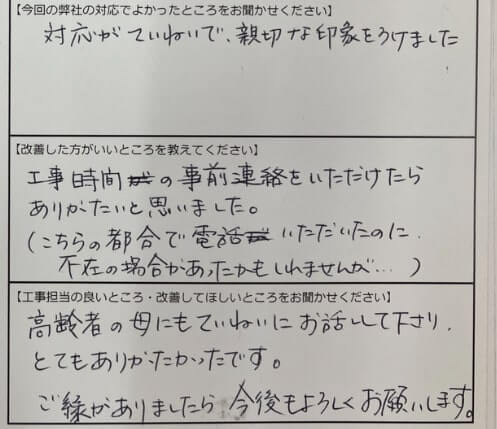 【今回の弊社の対応でよかったところをお聞かせください】
対応がていねいで、親切な印象をうけました
【改善した方がいいところを教えてください】
工事時間の事前連絡をいただけたら
ありがたいと思いました。
(こちらの都合で電話いただいたのに
不在の場合があったかもしれませんが…)
【工事担当の良いところ・改善してほしいところをお聞かせください】
高齢者の母にもていねいにお話しして下さり、
とてもありがたかったです。
ご縁がありましたら今後もよろしくお願いします。